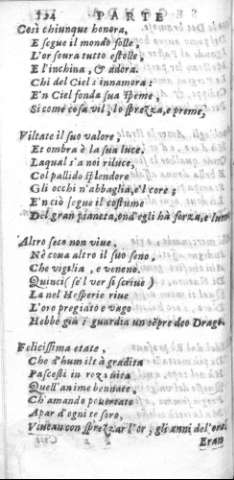 124 PARTE
Così chiunque honora,
E segue il mondo folle,
L'or soura tutto estolle,
E l'inchina, & adora.
Chi del Ciel s'innamora:
E'n Ciel fonda sua speme,
Sì come cosa vil, lo sprezza, e preme,
Viltate il suo valore,
Et ombra è la sua luce,
Laqual s'a noi riluce,
Col pallido splendore
Gli occhi n'abbaglia, e'l core;
E'n ciò segue il costume
Del gran pianeta, ond'egli hà forza, e lume
Altro seco non viue,
Nè coua altro il suo seno,
Che vigilia, e veneno.
Quinci (se'l ver si scriue)
La nel Hesperie riue
L'oro pregiato e vago
Hebbe già i guardia un sēpre deo Drago
Felicissima etate,
Che d'humiltà gradita
Pascesti in roza vita
Quell'anime bennate,
Ch'amando pouertate
A par d'ogni tesoro,
Vincan con sprezzar l'or, gli anni del'oro
Eran